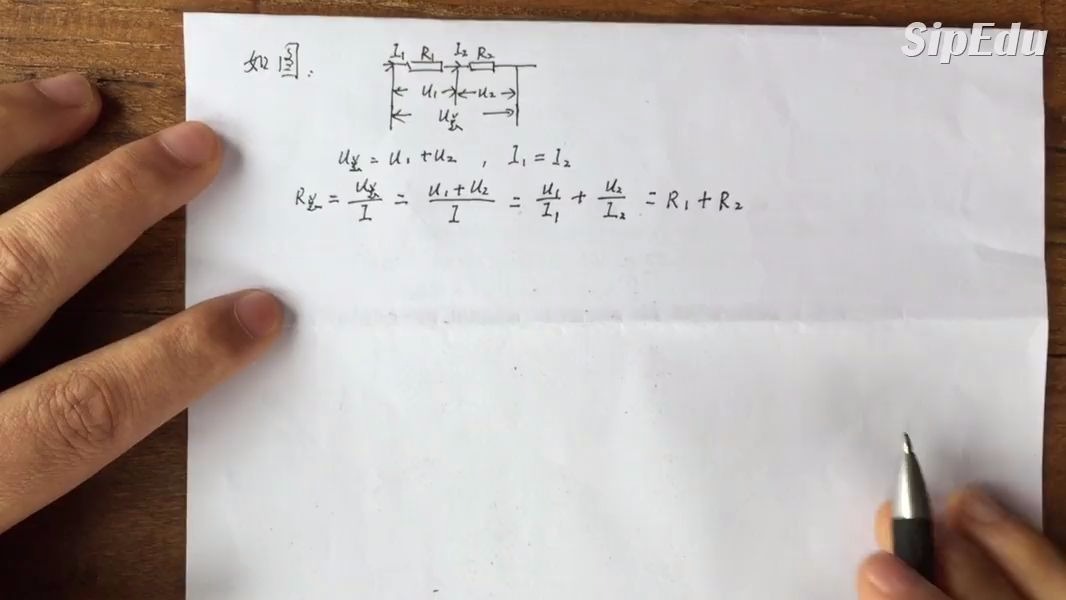 SipEdu
如图:
I₁ R₁ I₂ R₂
U₁ U₂
U总
U总 = U₁ + U₂ , I₁ = I₂
R总 = U总/I = (U₁ + U₂)/I = U₁/I₁ + U₂/I₂ = R₁ + R₂